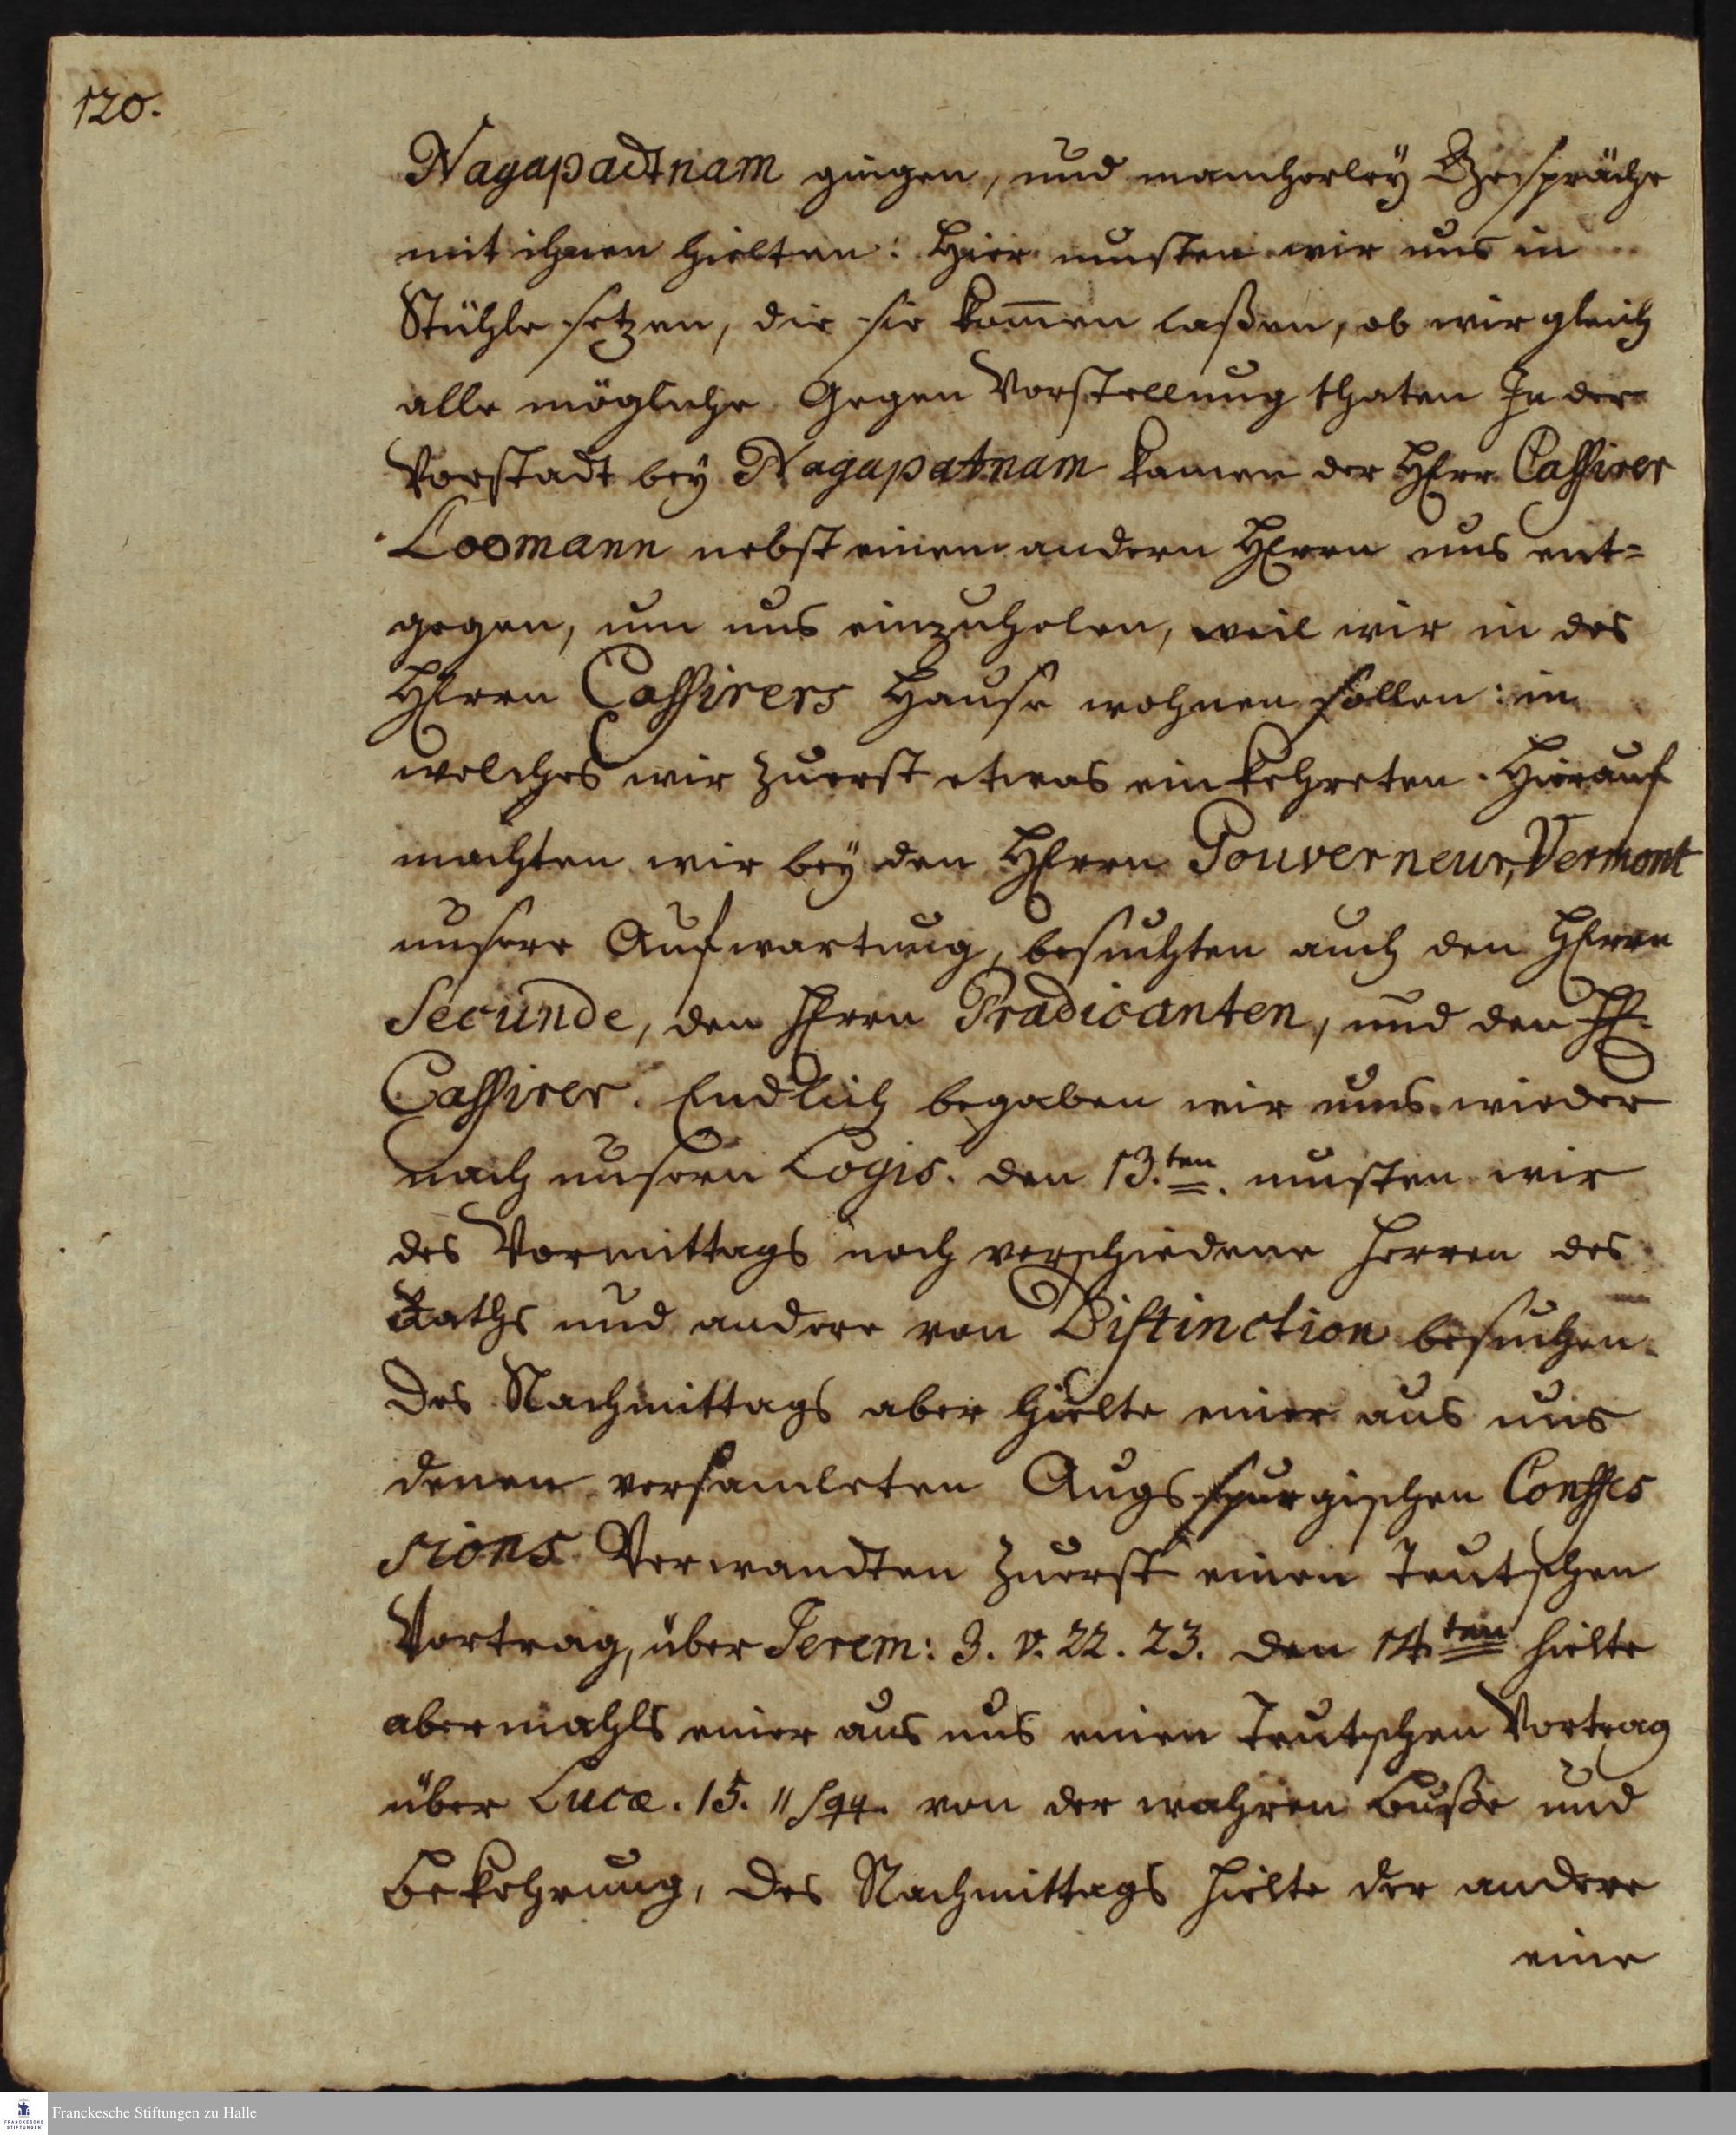 120.
Nagapadtnam gingen, und mancherleÿ Gespräche
mit ihnen hielten: Hier musten wir uns in
Stühle setzen, die sie kom̄en laßen, ob wir gleich
alle mögliche Gegen Vorstellung thaten In der
Vorstadt beÿ Nagapatnam kamen der HErr Cassirer
Loomann nebst einem andern HErrn uns ent=
gegen, um uns einzuholen, weil wir in des
HErrn Cassirers Hause wohnen sollen: in
welches wir zuerst etwas einkehreten. Hierauf
machten wir beÿ den HErrn Gouverneur, Vermont
unsere Aufwartung, besuchten auch den HErrn
Secunde, den HErrn Prædicanten, und den HE.
Cassirer. Endlich begaben wir uns wieder
nach unsern Logis. den 13.ten. musten wir
des Vormittags noch verschiedene Herren des
Raths und andere von Distinction besuchen.
Des Nachmittags aber hielte einer aus uns
denen versamleten Augsspurgischen Confes
sions Verwandten zuerst einen teutschen
Vortrag, über Jerem: 3. v. 22. 23. den 14ten hielte
abermahls einer aus uns einen teutschen Vortrag
über Lucæ. 15. 11 sqq. von der wahren Buße und
Bekehrung, des Nachmittags hielte der andere
eine
Franckesche Stiftungen zu Halle
FRANCKESCHE STIFTUNGEN